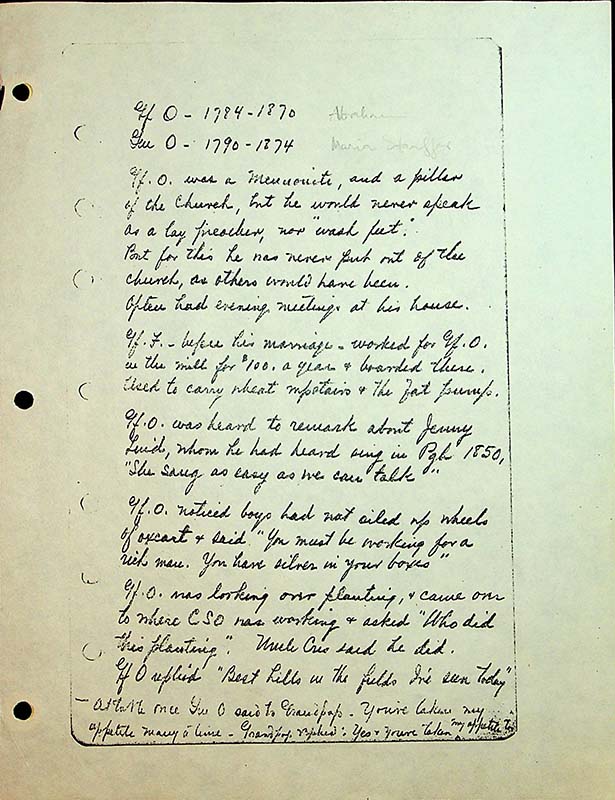 Gf O - 1784-1870 Abraham
Gm O - 1790-1874 Maria Stauffer
Gf. O. was a Mennonite, and a pillar
of the Church, but he would never speak
as a lay preacher, nor "wash feet".
But for this he was never put out of the
church, as others would have been.
Often had evening meetings at his house.
Gf. F. - before his marriage - worked for Gf. O.
in the mill for $100. a year & boarded there.
Used to carry wheat upstairs & the
Gf. O. was heard to remark about Jenny
Lind, whom he had heard sing in Pgh 1850,
"She sang as easy as we can talk"
Gf. O. noticed boys had not oiled up wheels
of oxcart & said "You must be working for a
rich man. You have silver in your boxes"
Gf. O. was looking over planting, & came over
to where CSO was working & asked "Who did
this planting". Uncle Cris said he did.
Gf O replied "Best hills in the fields I've seen today"
- At table once Gm O said to Grandpap - You've taken my
appetite many a time - Grandpap replied: Yes & you've taken my appetite too